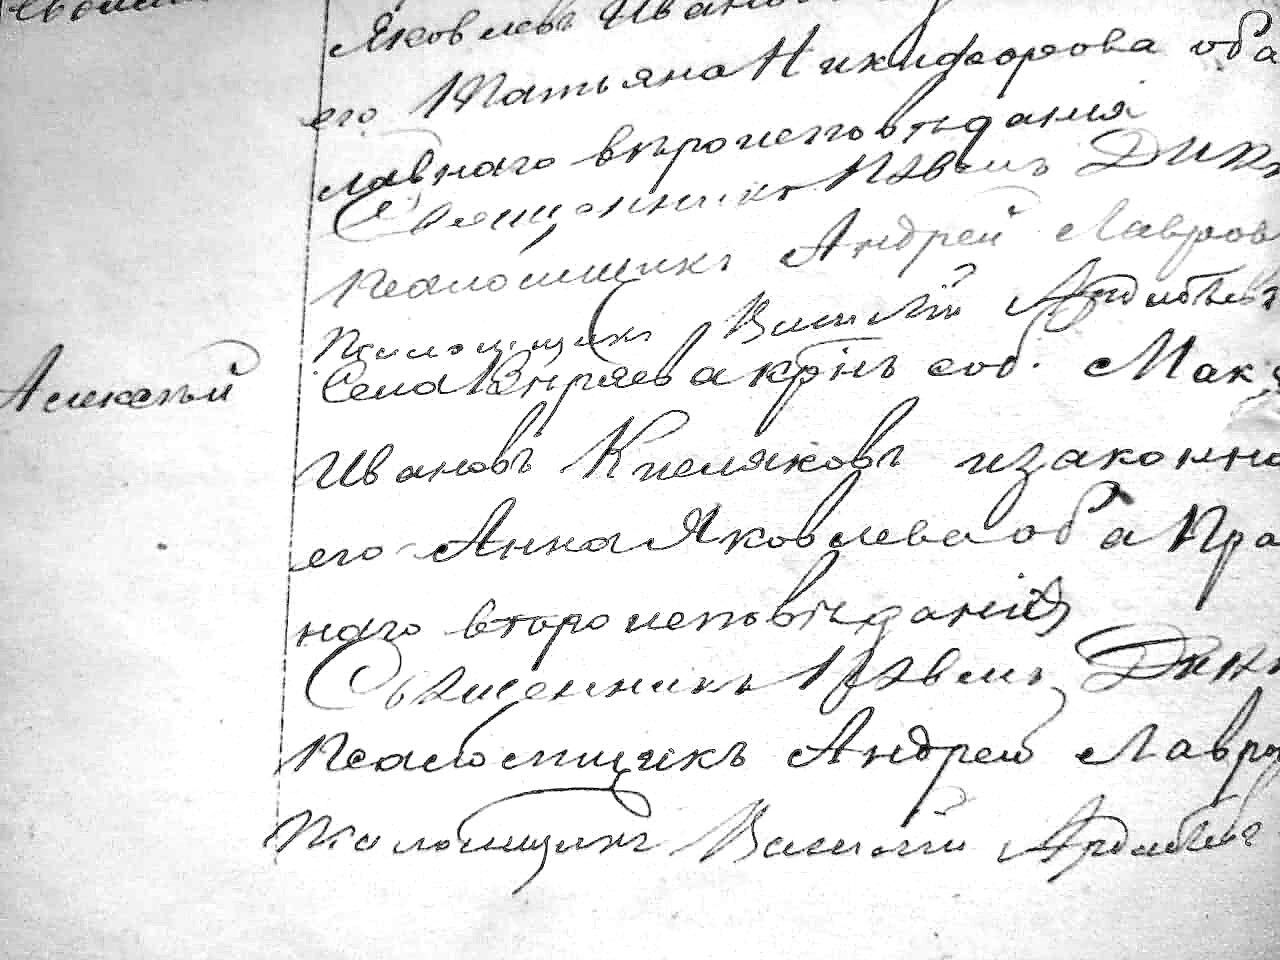 Яковлевъ Ивано
его Татьяна Никифорова оба
лавнаго вѣроисповѣданія
Священникъ Павелъ Дик
Псаломщикъ Андрей Лавров
Псаломщикъ Василій
Алексѣй
Села крнъ соб. Мак
Ивановъ Киселяковъ и законна
его Анна Яковлева оба Пра
наго вѣроисповѣданія
Священникъ Павелъ Дик
Псаломщикъ Андрей Лавро
Псаломщикъ Василій